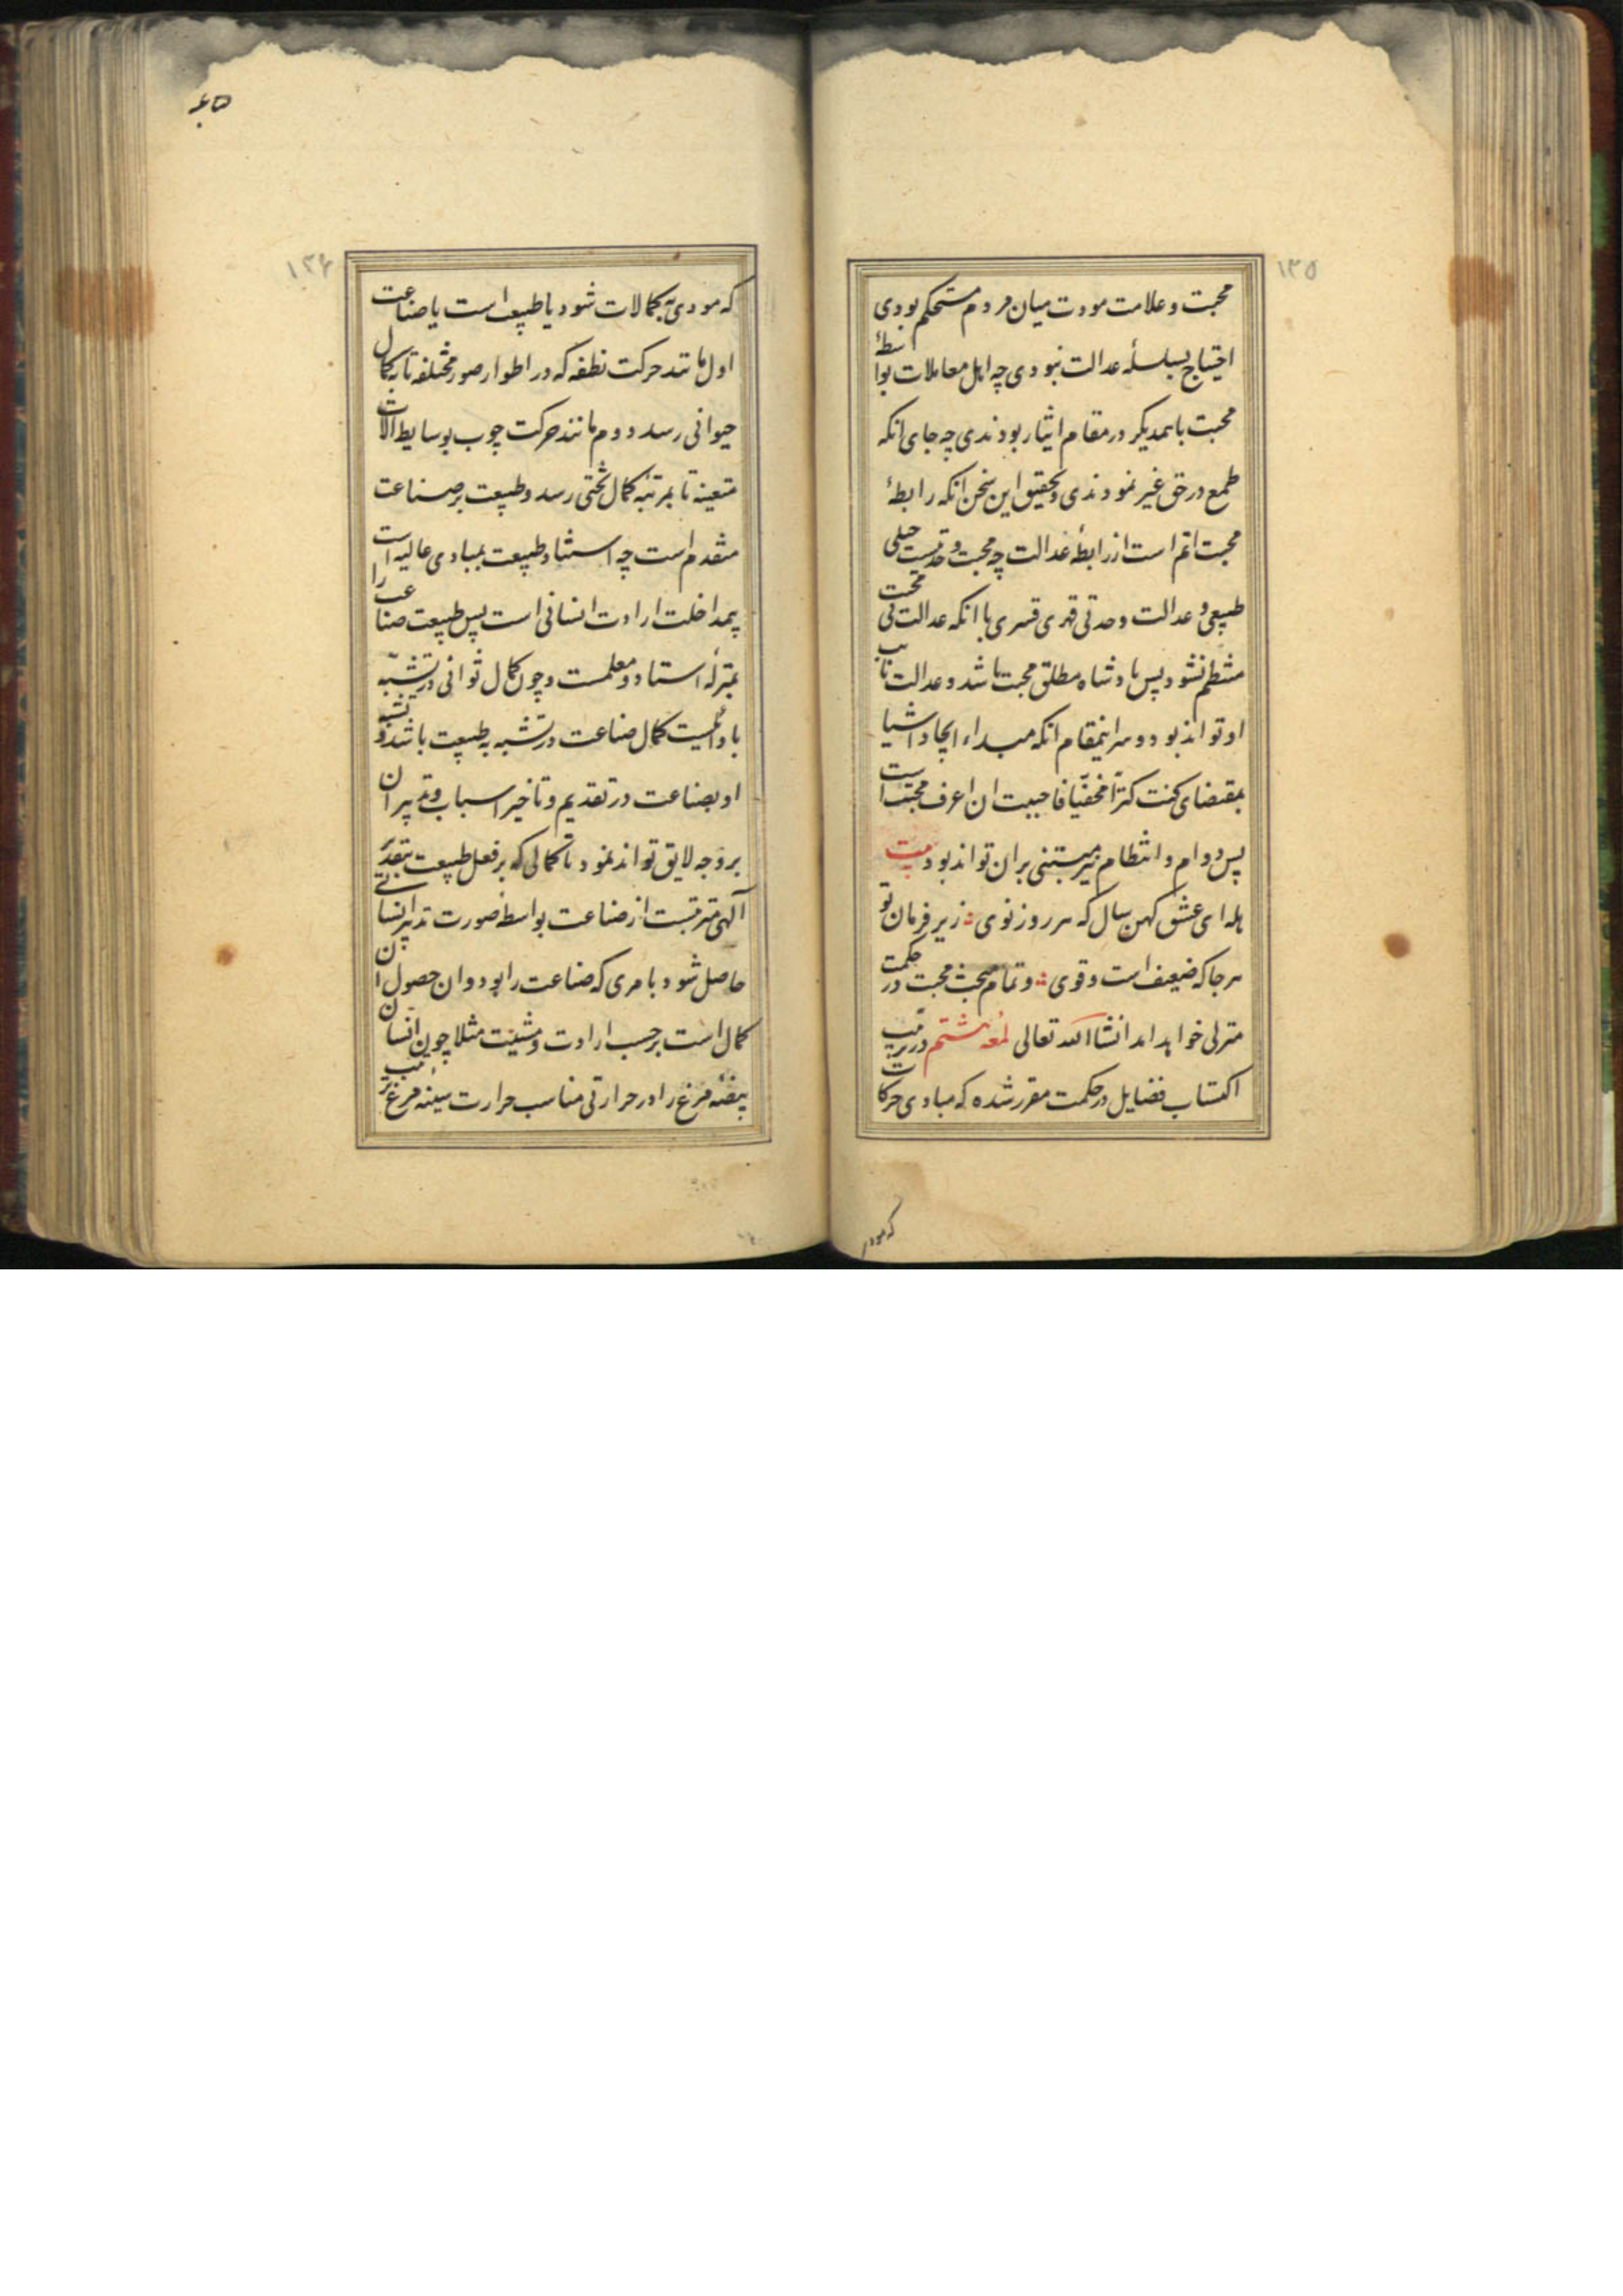 ۱۳۵
محبت و علامت مودت میان مردم مستحکم بودی
احتیاج بسلسلهٔ عدالت نبودی چه اهل معاملات بواسطهٔ
محبت باهمدیکر در مقام ایثار بودندی چه جای انکه
طمع در حق غیر نمودندی و تحقیق این سخن انکه رابطهٔ
محبت اتم است از رابطهٔ عدالت چه محبت وحدتیست جبلی
طبیعی و عدالت وحدتی قهری قسری با انکه عدالت بی محبت
منتظم نشود پس پادشاه مطلق محبت باشد و عدالت نایب
او تواند بود و سر اینمقام انکه مبداء ایجاد اشیا
بمقتضای کنت کنزاً مخفیّا فاحببت ان اعرف محبتست
پس دوام و انتظام نیز مبتنی بران تواند بود بیت
هله ای عشق کهن سال که هر روز نوی زیر فرمان تو
هر جا که ضعیف است و قوی و تمام مبحث محبت در حکمت
منزلی خواهد امد انشاالله تعالی لمعه هشتم در ترتیب
اکتساب فضایل در حکمت مقرر شده که مبادی حرکات
که مودی
۱۳۶
که مودی به کمالات شود یا طبیعت است یا صناعت
اول مانند حرکت نطفه که در اطوار صور مختلفه تا به کمال
حیوانی رسد و دوم مانند حرکت چوب بوسایط الات
متعینه تا بمرتبهٔ کمال تختی رسد و طبیعت بر صناعت
متقدم است چه استناد طبیعت بمبادی عالیه است
بیمداخلت ارادت انسانی است پس طبیعت صناعت را
بمنزلهٔ استاد و معلمست و چون کمال ثوانی در تشبّه
باوائلست کمال صناعت در تشبه به طبیعت باشد و تشبه
او بصناعت در تقدیم و تاخیر اسباب و تدبیر ان
بر وجه لایق تواند نمود تا کمالی که بر فعل طبیعت بتقدیر
آلهی مترتبست از صناعت بواسطه صورت تدبیر انسانی
حاصل شود با مری که صناعت را بود و ان حصول ان
کمال است بر حسب ارادت و مشیت مثلا چون انسان
بیضهٔ مرغ را در حرارتی مناسب حرارت سینه مرغ